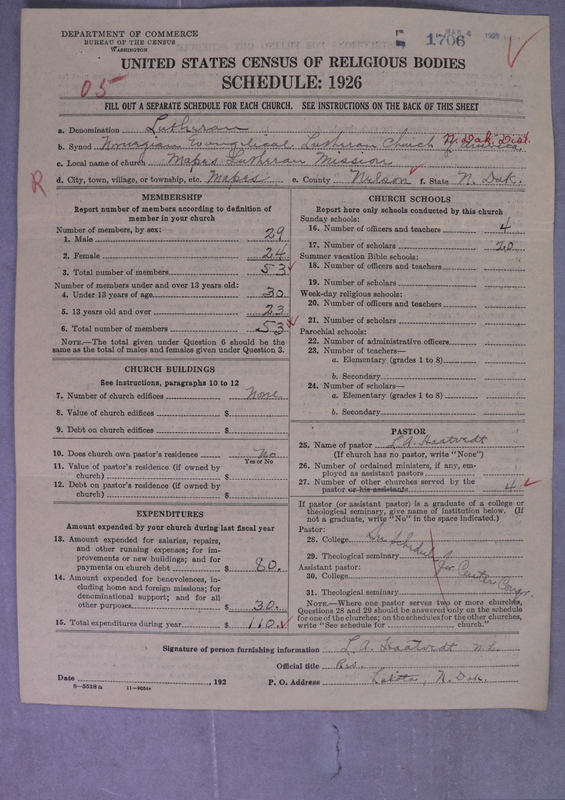 DEPARTMENT OF COMMERCE
BUREAU OF THE CENSUS
WASHINGTON
1706
UNITED STATES CENSUS OF RELIGIOUS BODIES
SCHEDULE: 1926
05
FILL OUT A SEPARATE SCHEDULE FOR EACH CHURCH. SEE INSTRUCTIONS ON THE BACK OF THIS SHEET
a. Denomination Lutheran
b. Synod Norwegian Evangelical Lutheran Church of America N. Dak. Dist.
c. Local name of church Mapes Lutheran Mission
d. City, town, village, or township, etc. Mapes e. County Nelson f. State N. Dak.
R
MEMBERSHIP
Report number of members according to definition of
member in your church
Number of members, by sex:
1. Male 29
2. Female 24
3. Total number of members 53
Number of members under and over 13 years old:
4. Under 13 years of age 30
5. 13 years old and over 23
6. Total number of members 53
NOTE.—The total given under Question 6 should be
same as the total of males and females given under Question 3.
CHURCH BUILDINGS
See instructions, paragraphs 10 to 12
7. Number of church edifices None
8. Value of church edifices $
9. Debt on church edifices $
10. Does church own pastor's residence No
Yes or No
11. Value of pastor's residence (if owned by
church) $
12. Debt on pastor's residence (if owned by
church) $
EXPENDITURES
Amount expended by your church during last fiscal year
13. Amount expended for salaries, repairs,
and other running expenses; for im-
provements or new buildings; and for
payments on church debt $ 80.
14. Amount expended for benevolences, in-
cluding home and foreign missions; for
denominational support; and for all
other purposes $ 30.
15. Total expenditures during year $ 110.
CHURCH SCHOOLS
Report here only schools conducted by this church
Sunday schools:
16. Number of officers and teachers 4
17. Number of scholars 20
Summer vacation Bible schools:
18. Number of officers and teachers
19. Number of scholars
Week-day religious schools:
20. Number of officers and teachers
21. Number of scholars
Parochial schools:
22. Number of administrative officers
23. Number of teachers—
a. Elementary (grades 1 to 8)
b. Secondary
24. Number of scholars—
a. Elementary (grades 1 to 8)
b. Secondary
PASTOR
25. Name of pastor L. A. Haatvedt
(If church has no pastor, write "None")
26. Number of ordained ministers, if any, em-
ployed as assistant pastors
27. Number of other churches served by the
pastor or his assistants 4
If pastor (or assistant pastor) is a graduate of a college or
theological seminary, give name of institution below. (If
not a graduate, write "No" in the space indicated.)
Pastor:
28. College See Schedule
29. Theological seminary
Assistant pastor: for Center Congr.
30. College
31. Theological seminary
NOTE.—Where one pastor serves two or more churches,
Questions 28 and 29 should be answered only on the schedule
for one of the churches; on the schedules for the other churches,
write "See schedule for church."
Signature of person furnishing information L. A. Haatvedt
Official title Rev.
Date , 192 P. O. Address Lakota, N. Dak.
8—5518 a 11—9054